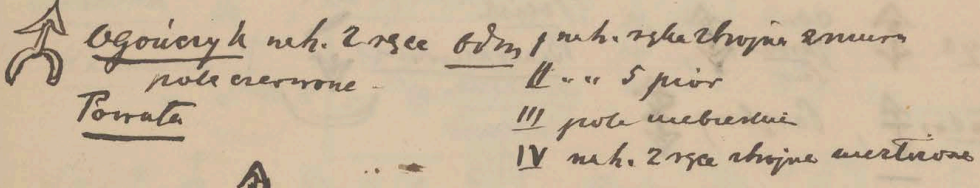 Ogończyk nah. 2 ręce odm I nah. ręka zbrojna z muru
pole czerwone II " " 5 piór
Powała III pole niebieskie
IV nah. 2 ręce zbrojne